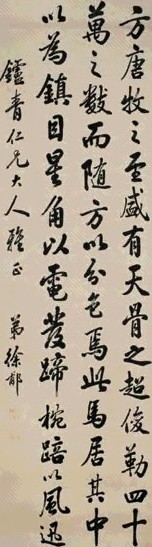 方唐牧之至盛有天骨之超俊勒四十
萬之數而随方以分色焉此馬居其中
以為鎮目星角以電發蹄椀踣以風迅
鑪青仁兄大人雅正 弟徐郙